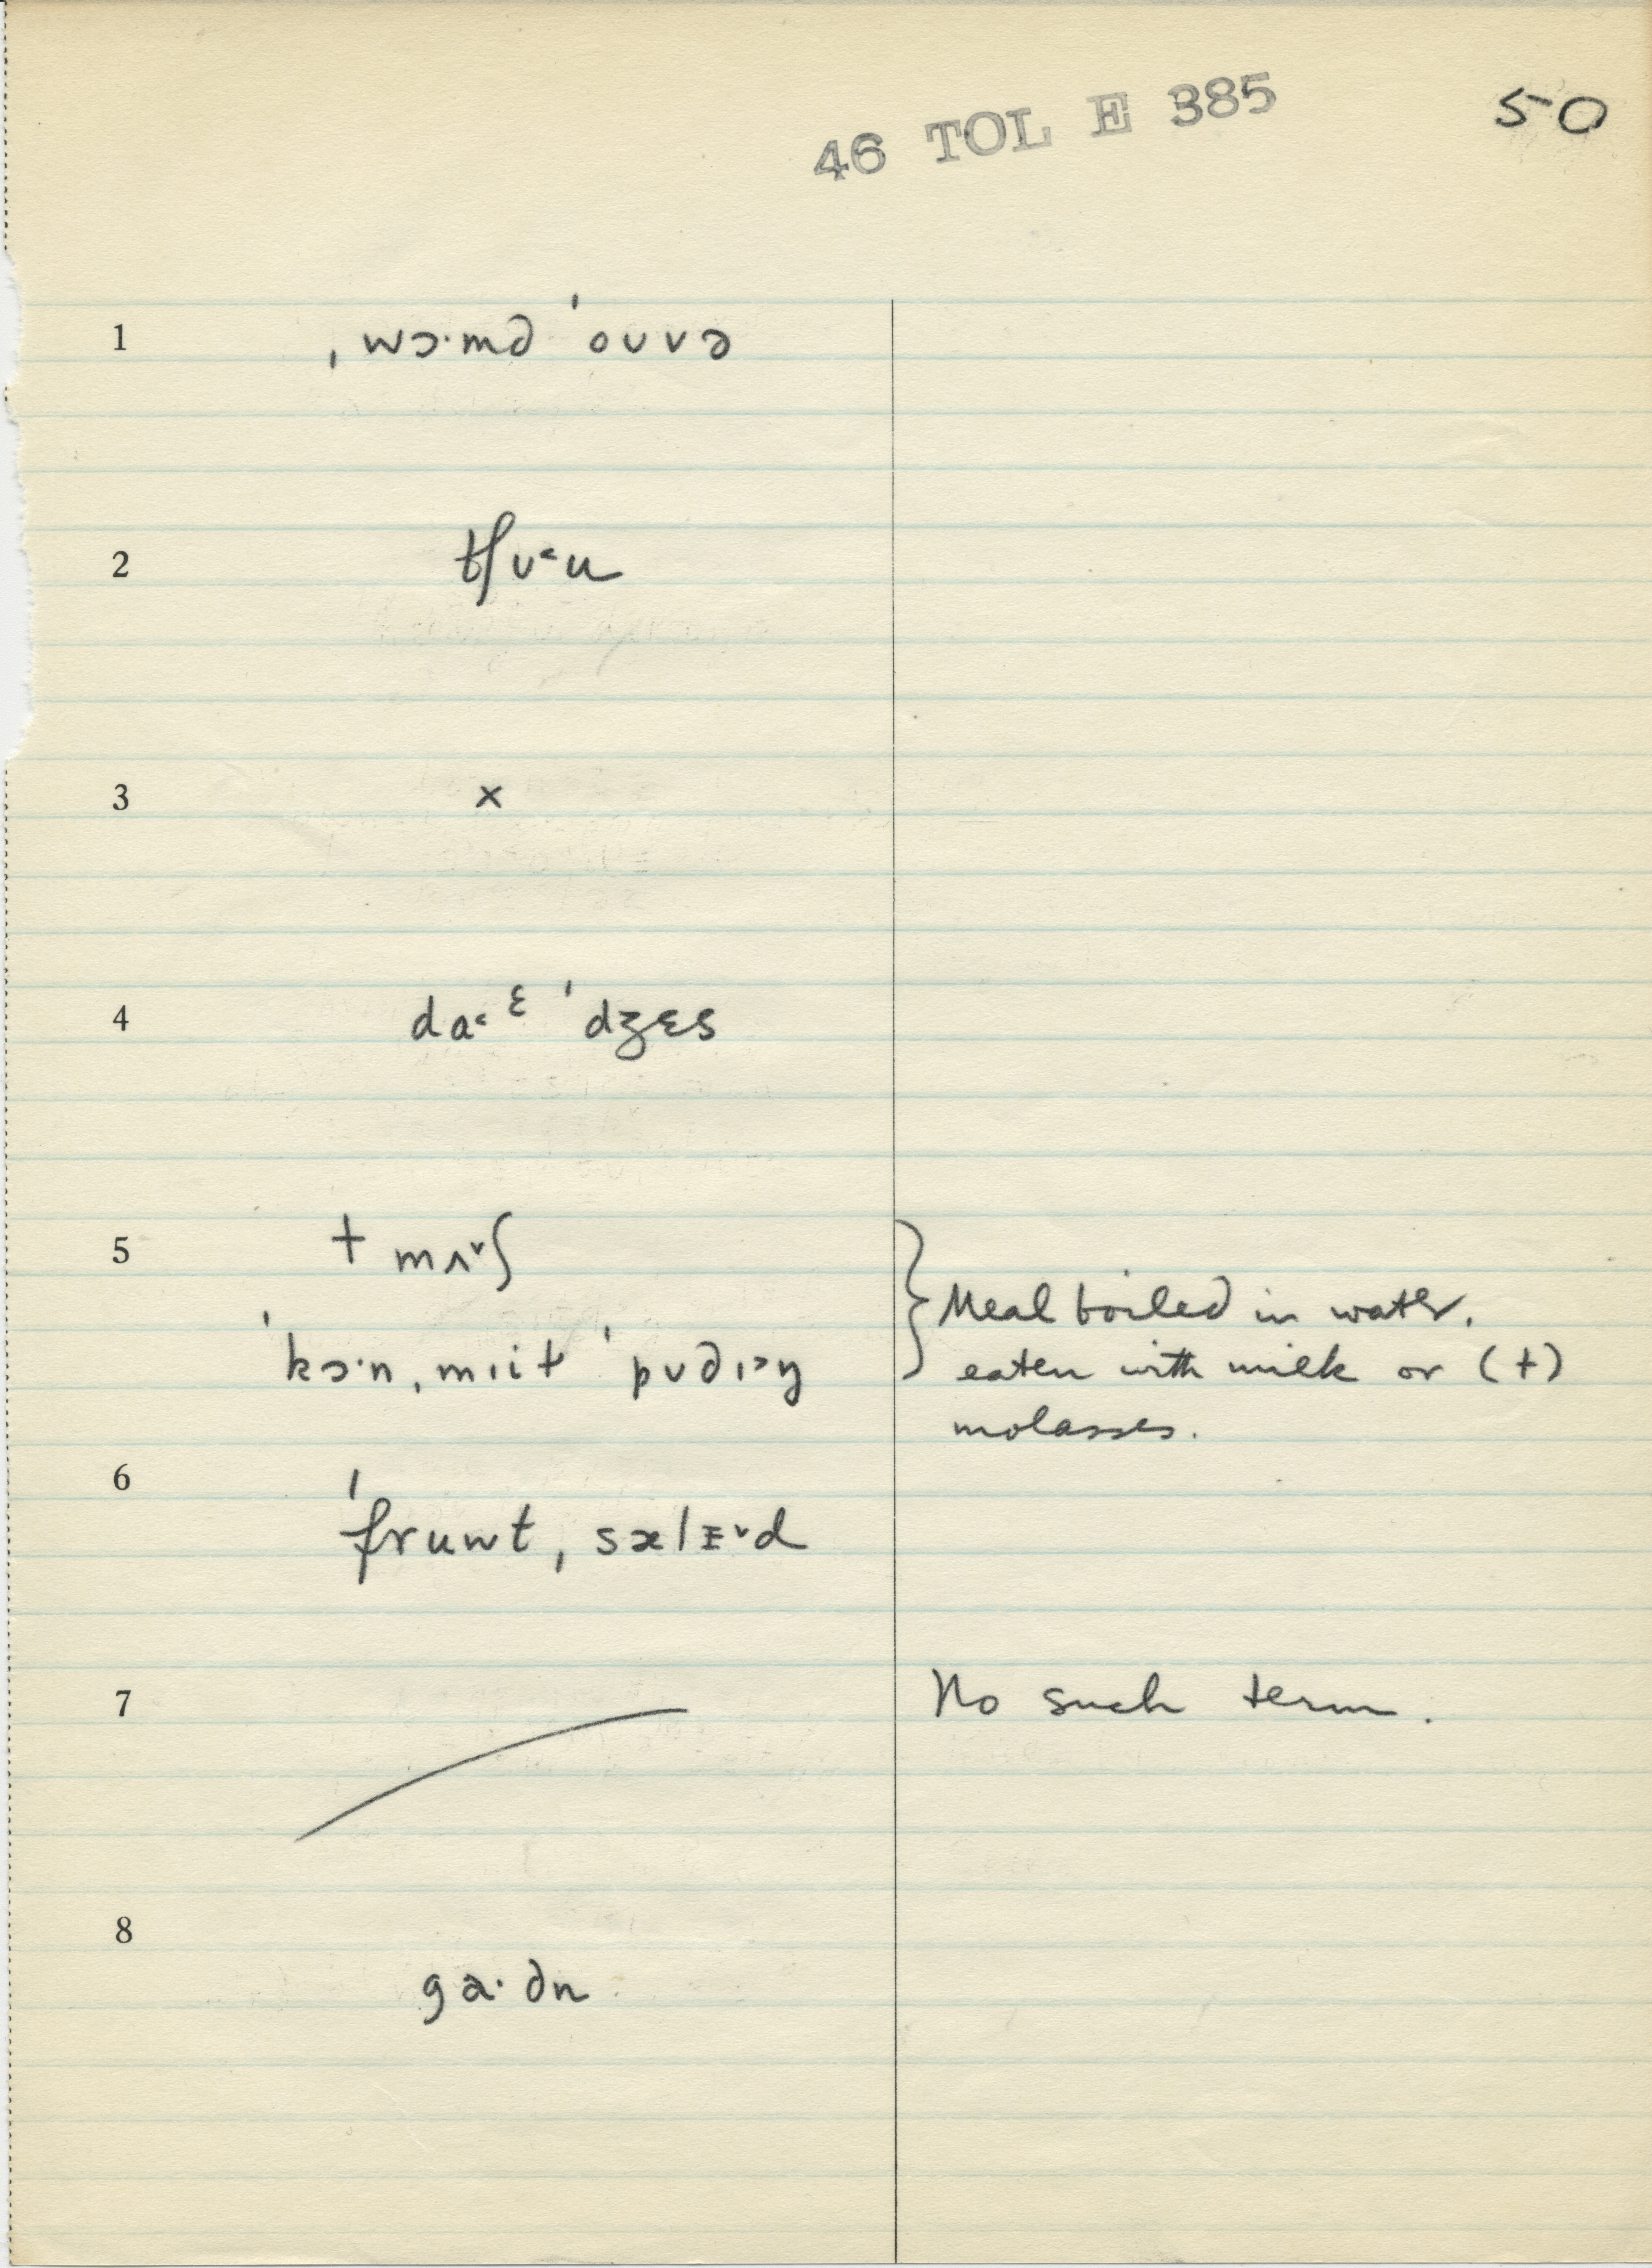 46 TOL E 385
50
1 ˌwɔ·md ˈoʊvə
2 tʃʊ˂u
3 ×
4 da˂ᵋ ˈdʒɛs
5 + mʌ˅ʃ
} Meal boiled in water.
ˈkɔ·n, mɪit ˈpʊdɪ˃ŋ
eaten with milk or (+)
molasses.
6 ˈfruwt, sælɪ˅d
7 No such term.
8 ga·dn